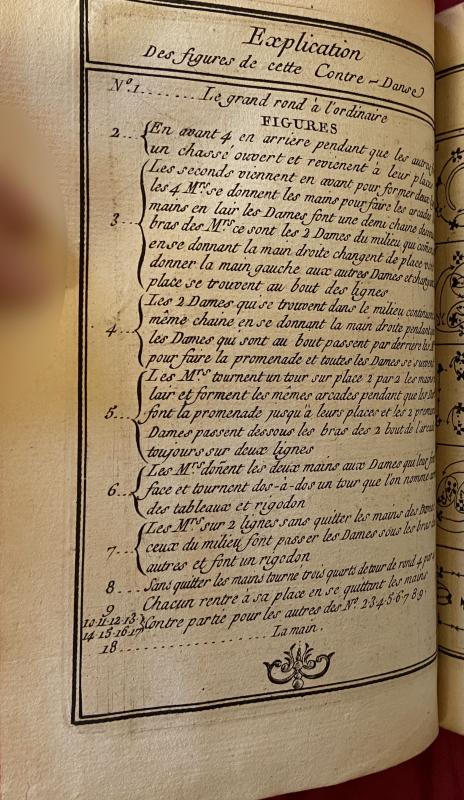 Explication
Des figures de cette Contre-Danse
No. 1 ....... Le grand rond à l'ordinaire
FIGURES
2 ... En avant 4 en arriere pendant que les autres
un chassé ouvert et revienent à leur places
3 ... Les seconds viennent en avant pour former deux
les 4 Mrs se donnent les mains pour faire les arcades
mains en lair les Dames font une demi chaine dessous
bras des Mrs ce sont les 2 Dames du milieu qui
en se donnant la main droite changent de place
donner la main gauche aux autres Dames et
place se trouvent au bout des lignes
4 ... Les 2 Dames qui se trouvent dans le milieu continuent
même chaine en se donnant la main droite pendant
les Dames qui sont au bout passent par derriere les
pour faire la promenade et toutes les Dames se suivent
5 ... Les Mrs tournent un tour sur place 2 par 2 les mains
lair et forment les mêmes arcades pendant que les
font la promenade jusqu'à leurs places et les 2
Dames passent dessous les bras des 2 bout de l'arcade
toujours sur deux lignes
6 ... Les Mrs doñent les deux mains aux Dames qui leur
face et tournent dos-à-dos un tour que l'on nomme
des tableaux et rigodon
7 ... Les Mrs sur 2 lignes sans quitter les mains des Dames
ceux du milieu font passer les Dames sous les bras
autres et font un rigodon
8 ... Sans quitter les mains tourné trois quarts de tour de rond 4 par
9 Chacun rentre à sa place en se quittant les mains
10·11·12·13·
14·15·16·17 Contre partie pour les autres des No. 2·3·4·5·6·7·8·9·
18 ....................... La main.